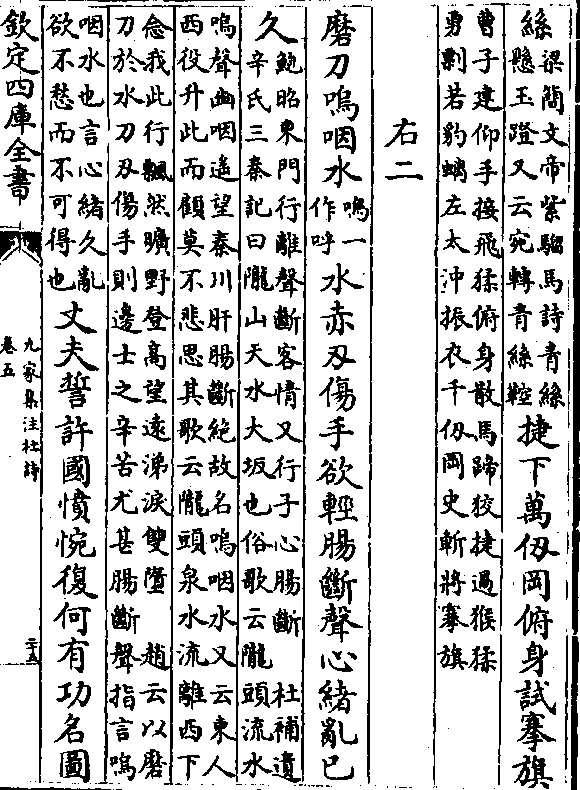 絲梁簡文帝紫騮馬詩青絲
懸玉蹬又云宛轉青絲鞚捷下萬仭岡俯身試搴旗
曹子建仰手接飛猱俯身散馬蹄狡捷過猴猱
勇剽若豹螭左太沖振衣千仭岡史斬將搴旗
右二
磨刀嗚咽水嗚一
作呼水赤刃傷手欲輕腸斷聲心緒亂已
久鮑昭東門行離聲斷客情又行子心腸斷 杜補遺
辛氏三秦記曰隴山天水大坂也俗歌云隴頭流水
嗚聲幽咽遥望秦川肝腸斷絶故名嗚咽水又云東人
西役升此而顧莫不悲思其歌云隴頭泉水流離西下
念我此行飄然曠野登高望逺涕淚雙墮 趙云以磨
刀於水刀刃傷手則邊士之辛苦尤甚腸斷聲指言嗚
咽水也言心緒久亂
欲不愁而不可得也丈夫誓許國憤惋復何有功名圖
欽定四庫全書
九家集注杜詩
卷五
二十五